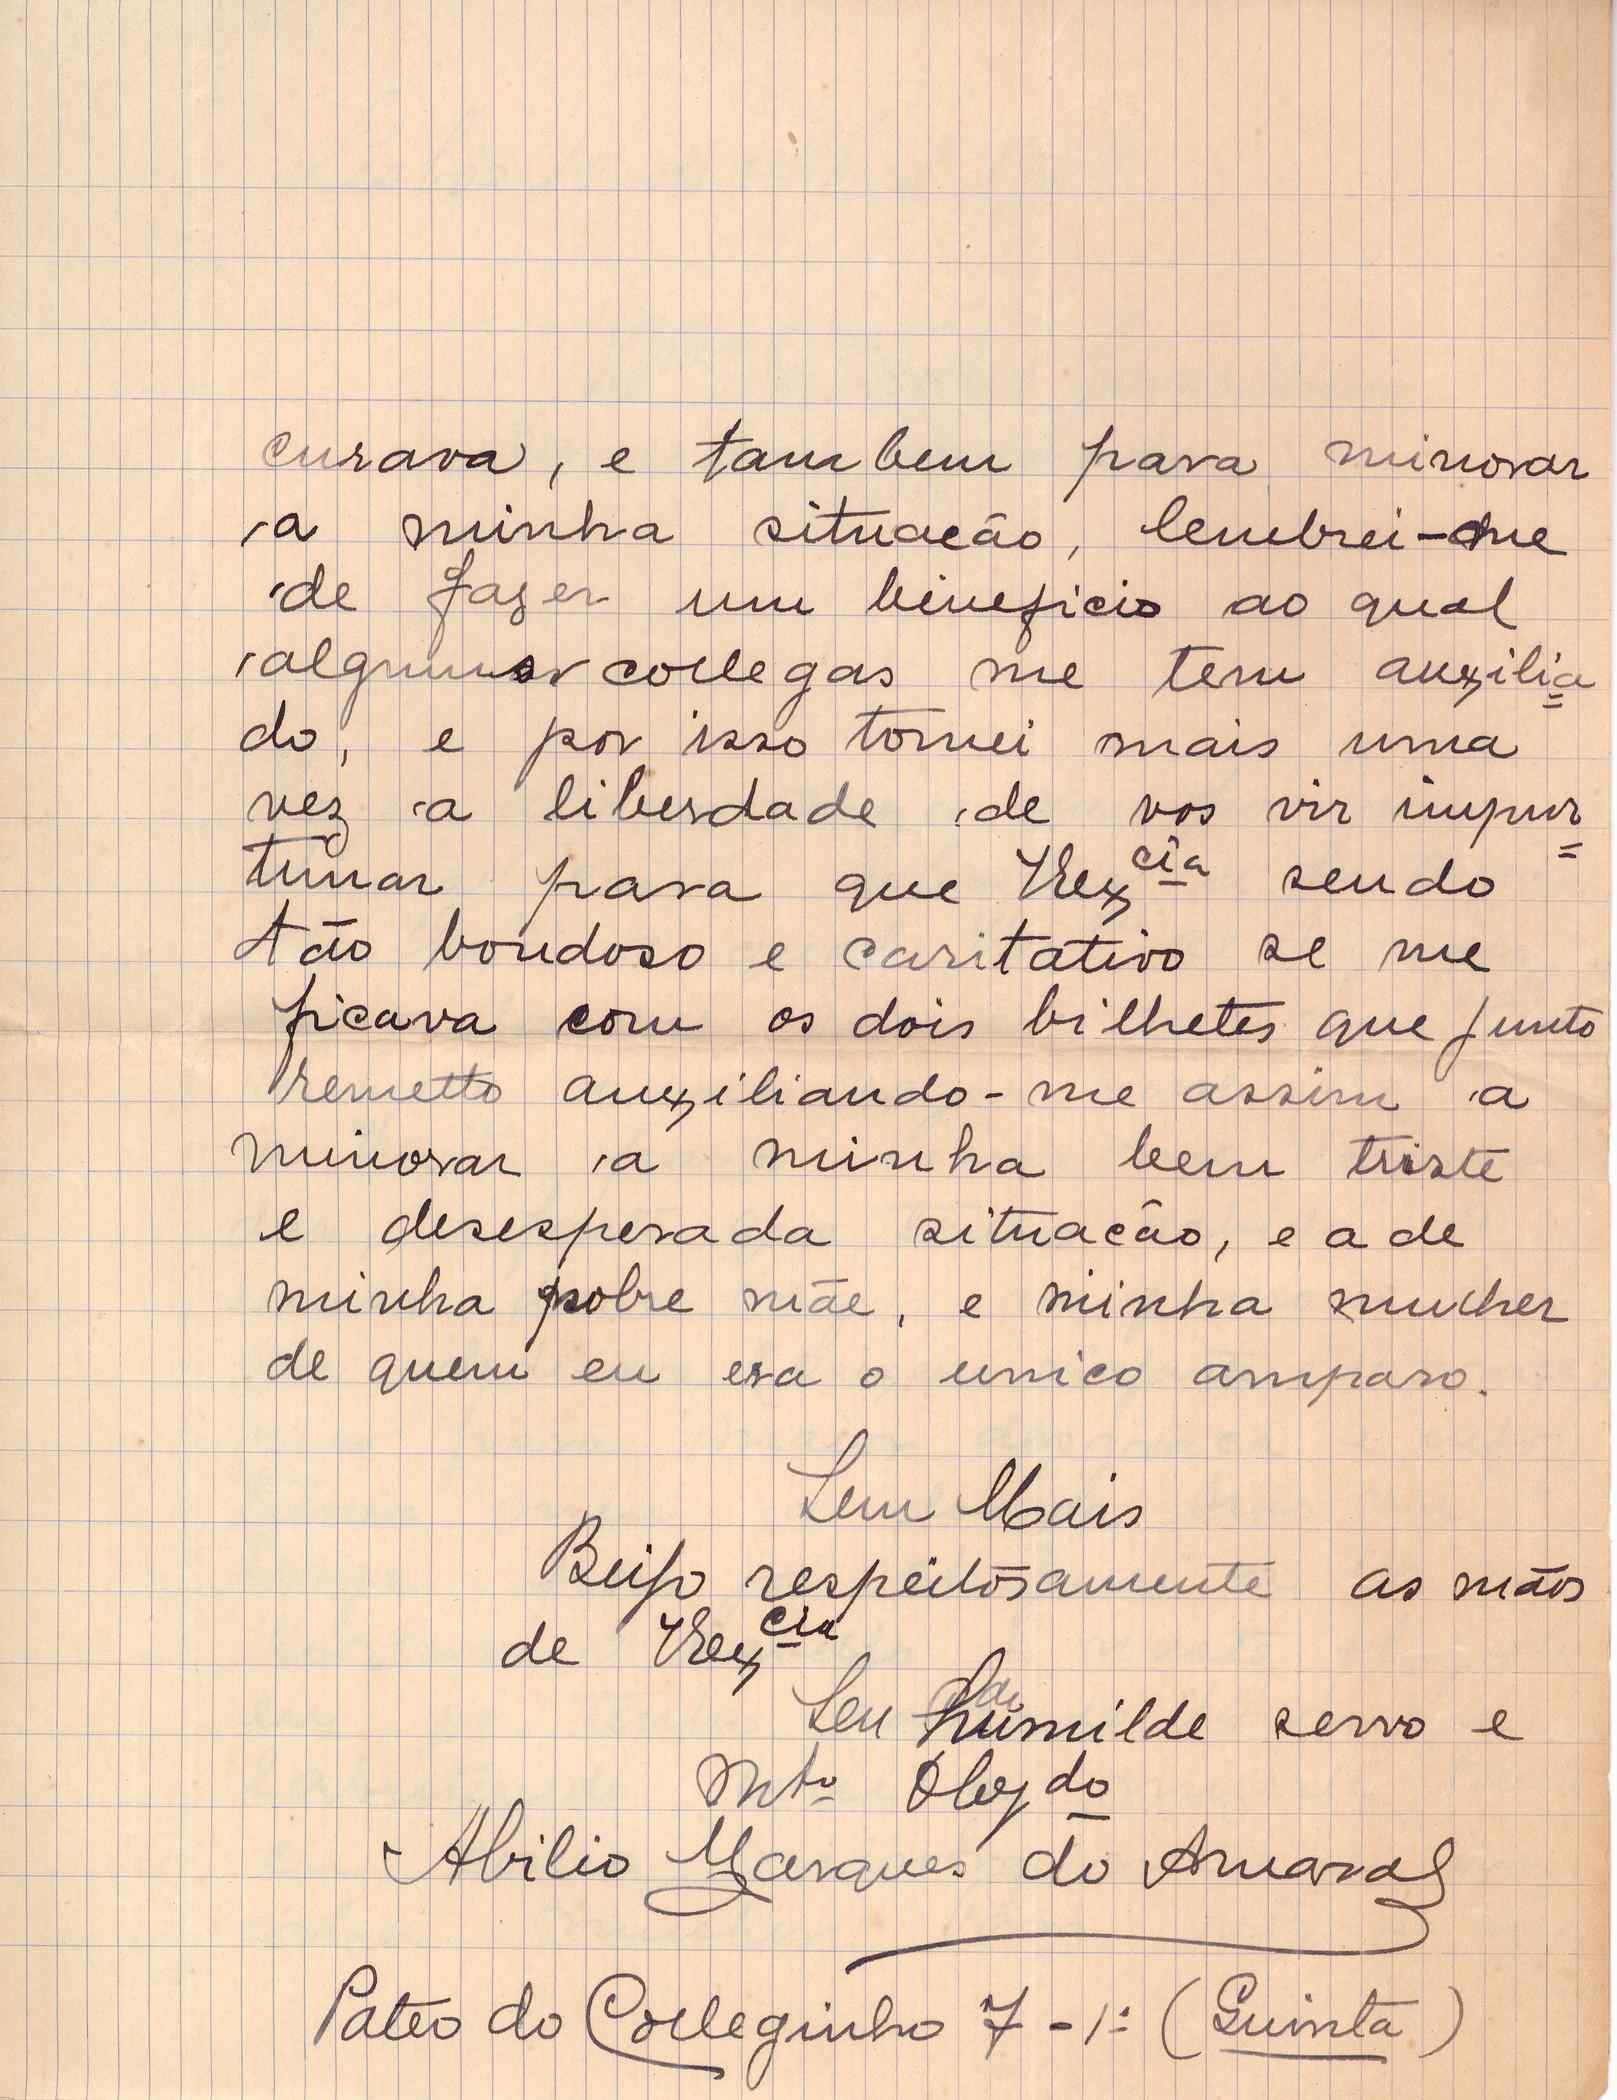 curava, e tambem para minorar
a minha situacão, lembrei-me
de fazer um beneficio ao qual
alguns collegas me tem auxilia=
do, e por isso tomei mais uma
vez a liberdade de vos vir impur=
tunar para que VExcia sendo
tão bondoso e caritativo se me
ficava com os dois bilhetes que junto
remetto auxiliando-me assim a
minorar a minha bem triste
e desesperada situacão, e a de
minha pobre mãe, e minha mulher
de quem eu era o unico amparo.
Sem Mais
Beijo respeitosamente as mãos
de VExcia
Seu humilde servo e
Mto Obgdo
Abilio Marques do Amaral
Pateo do Colleginho 7-1º (Guinta)